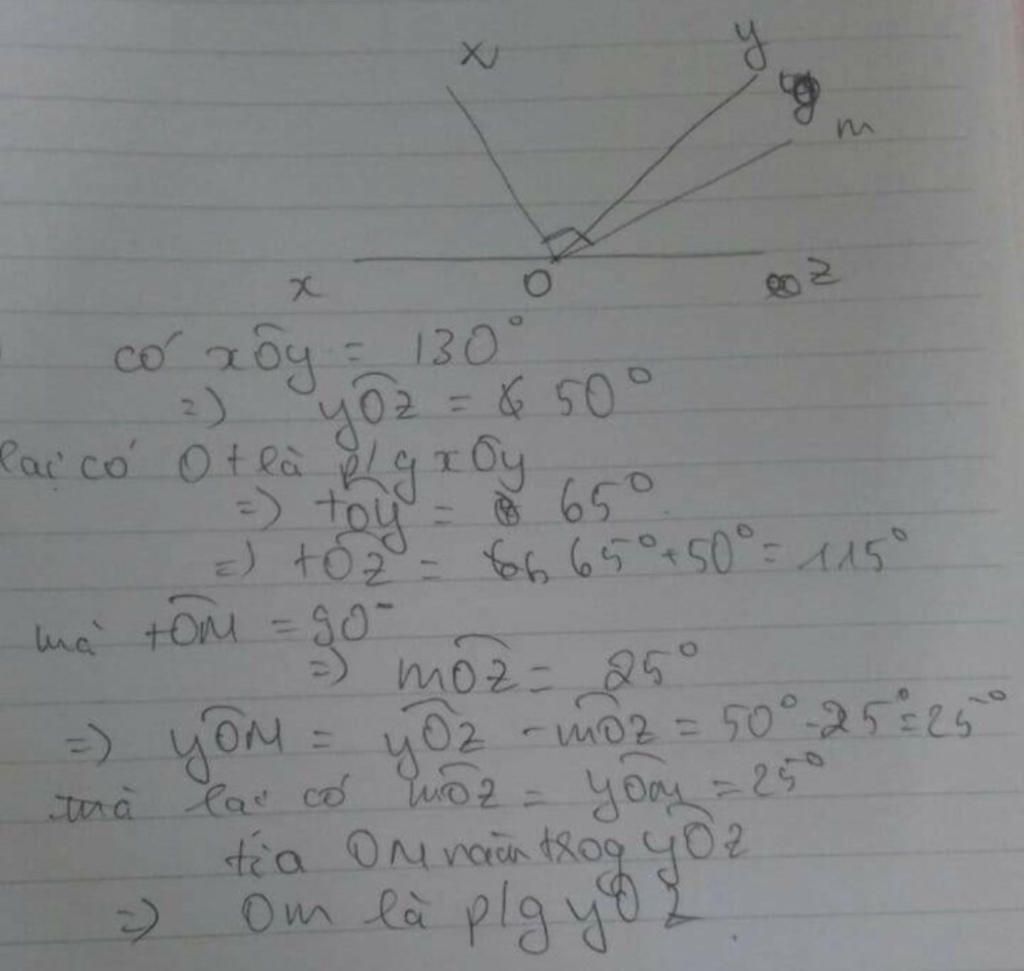 x y
m
x O z
có xÔy = 130°
=) yÔz = 50°
lại có Ot là p/g xÔy
=) tÔy = 65°
=) tÔz = 65° + 50° = 115°
mà tÔM = 90°
=) mÔz = 25°
=) yÔM = yÔz - mÔz = 50° - 25° = 25°
mà lại có mÔz = yÔm = 25°
tia OM nằm trog yÔz
=) Om là p/g yÔz.